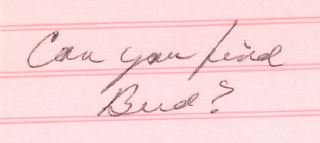 Can you find
Bud?